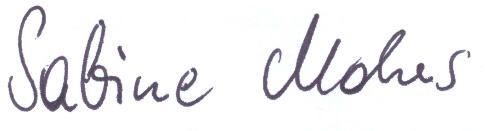 Sabine Mohrs